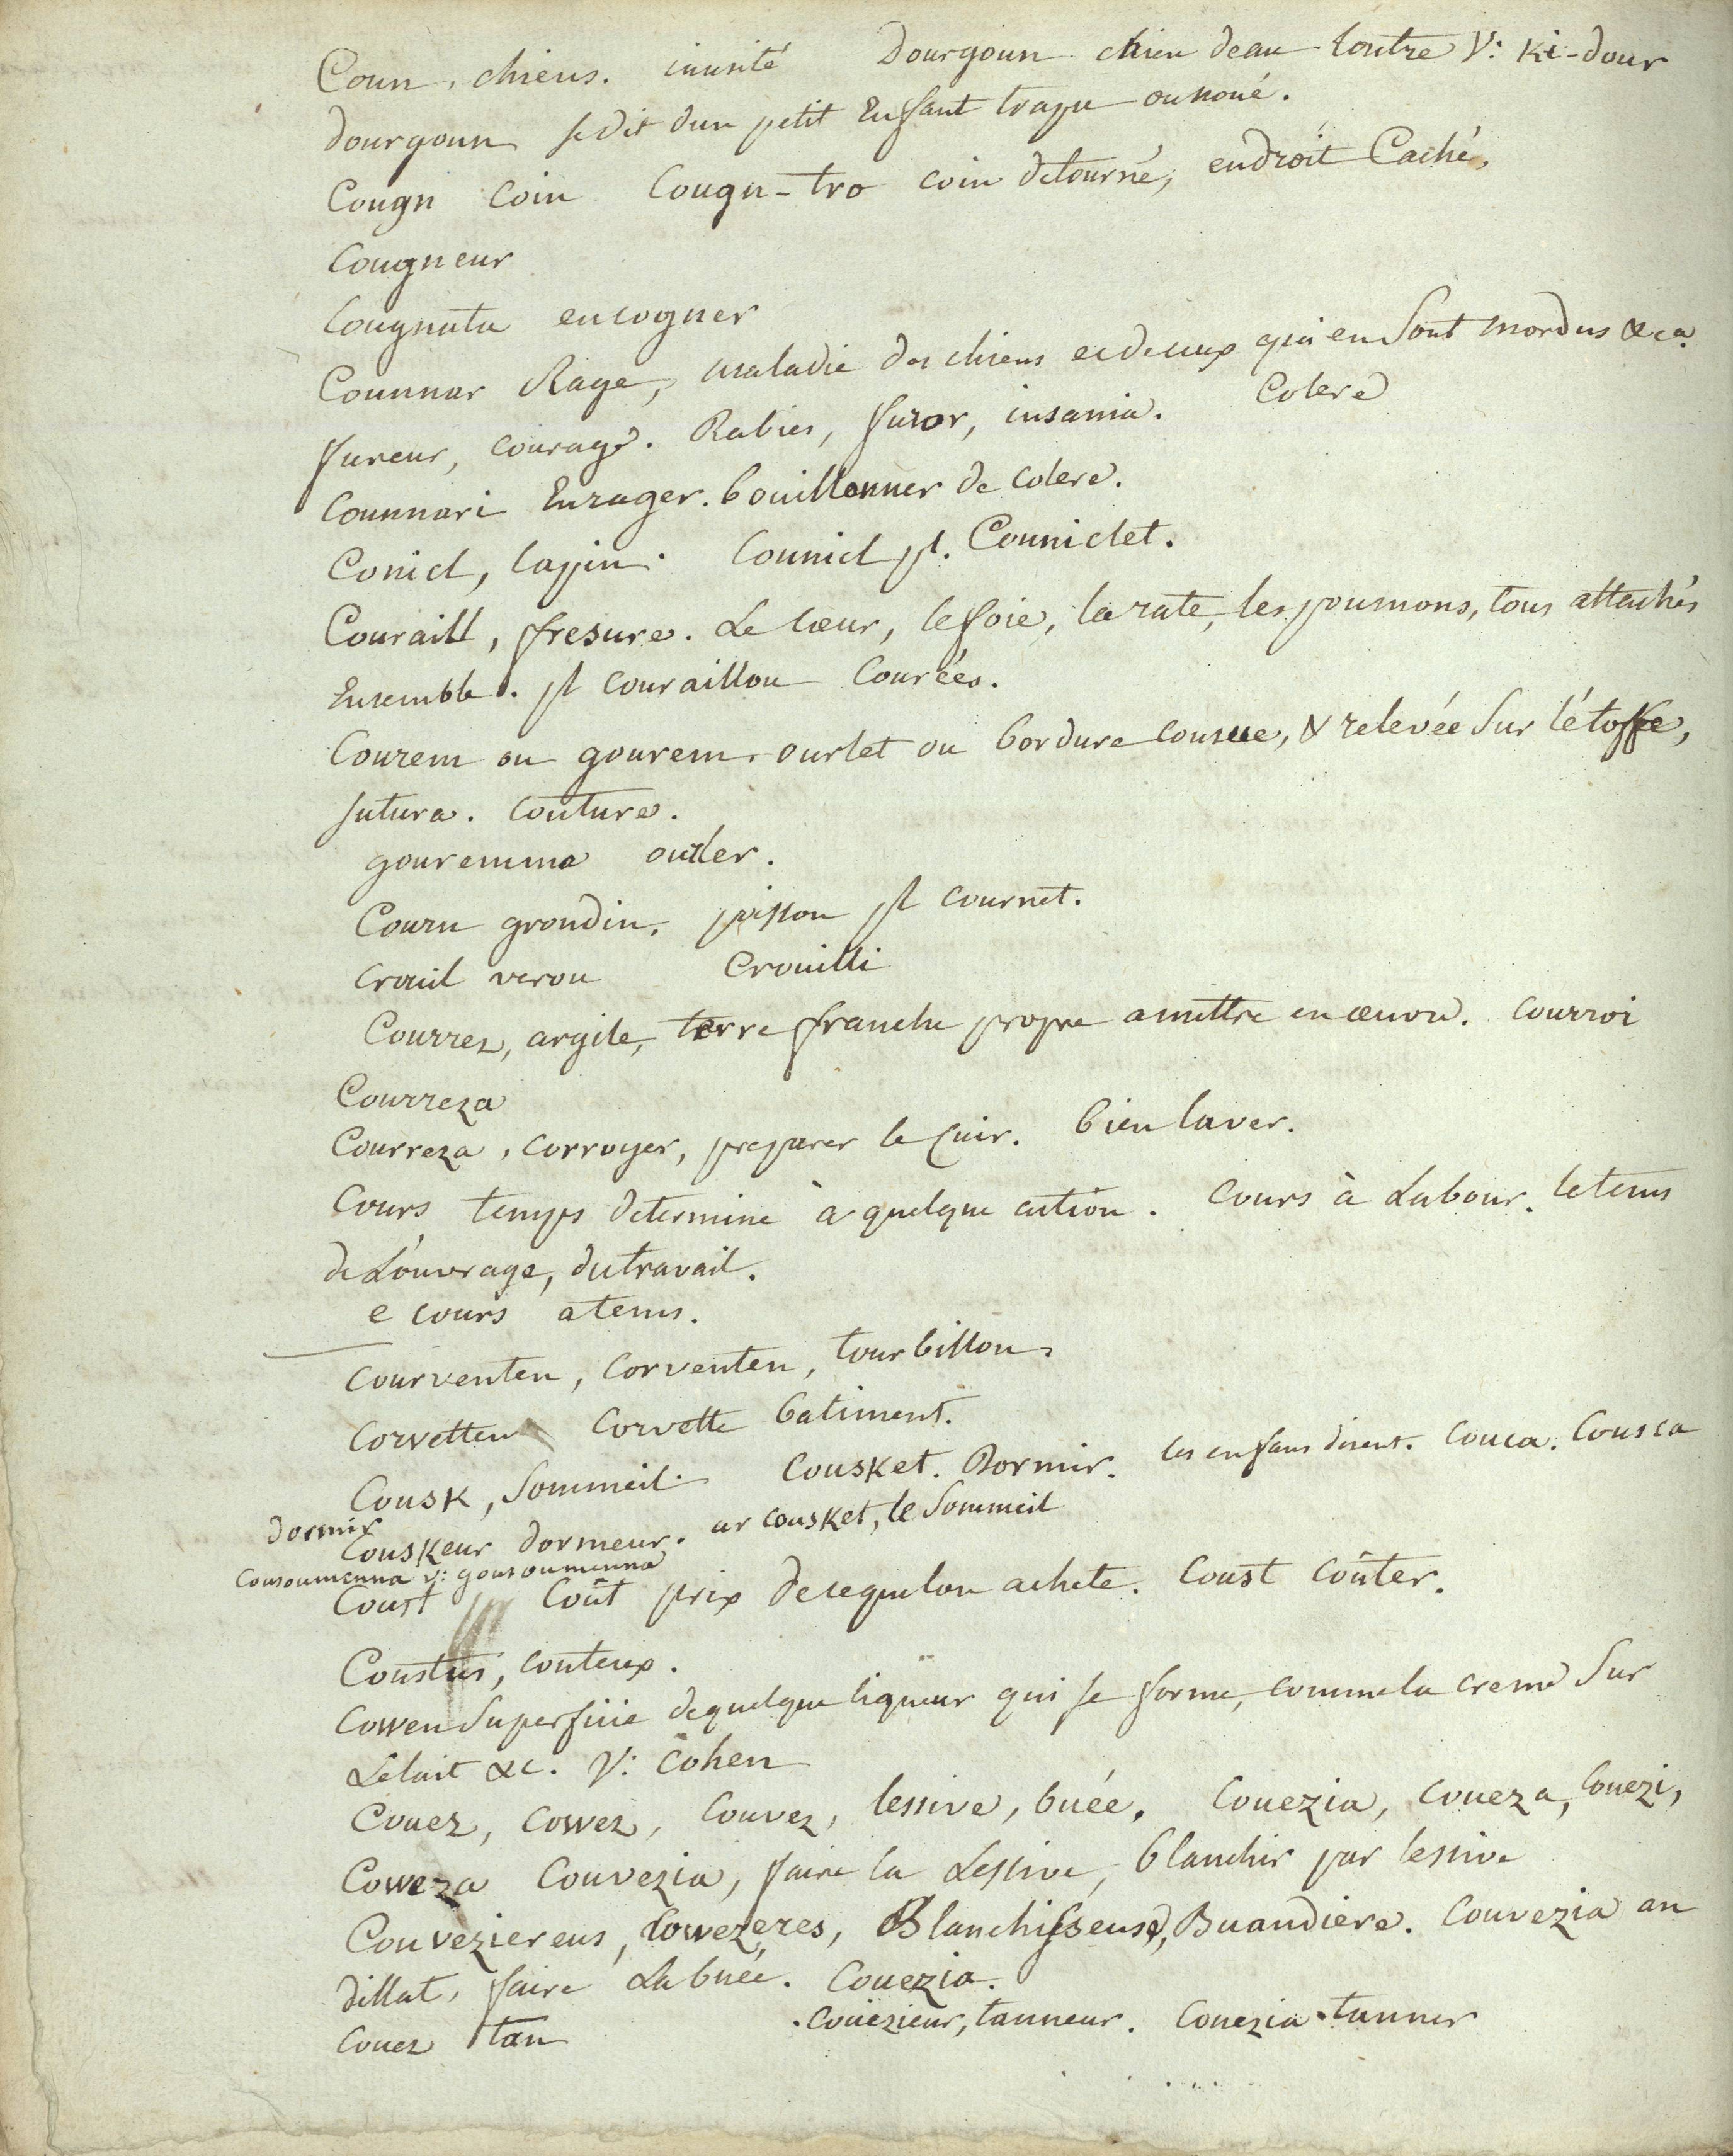 Coun, chiens. inusité Dourgoun chien deau loutre V: Ki-dour
dourgoun se dit dun petit Enfant trapu ou noué.
Cougn coin Cougn-tro coin detourné, endroit Caché,
Cougneur
Cougnata encogner
Counnar Rage, maladie des chiens et de ceux qui en Sont mordus &ca.
fureur, courage. Rabies, furor, insania. Colere
Counnari Enrager. bouillonner de colere.
Conicl, lapin. Counicl pl. Couniclet.
Couraill, fresure. Le cœur, le foie, la rate, les poumons, tous attachés
Ensemble. pl couraillou Courées.
Courem ou gourem, ourlet ou bordure cousue, & relevée Sur l'étoffe,
sutura. Couture.
gouremma ourler.
Courn grondin, poisson pl cournet.
Crouil verou Crouilli
Courrez, argile, terre franche propre a mettre en œuvre. courroi
Courreza
Courreza, corroyer, preparer le Cuir. bien laver.
Cours temps determiné à quelque action. Cours à Labour. le tems
de L'ouvrage, du travail.
e cours a tems.
Courventen, Corventen, tourbillon,
Corvetten Corvette batiment.
Cousk, Sommeil. Cousket. Dormir. les enfans disent. couca. Cousca
dormir
Couskeur dormeur. ar cousket, le Sommeil
Cousoumenna v: gousoumenna
Coust Coût prix de ce que lon achete. Coust Coûter.
Coustus, couteux.
Cowen Superficie de quelque liqueur qui se forme, comme la creme Sur
Le lait &c. V: Cohen
Couez, cowez, Couvez, lessive, buée. Couezia, coueza, couezi,
Coweza Couvezia, faire la Lessive, blanchir par lessive
Couveziereus, Cowezeres, Blanchisseuse, Buandiere. Couvezia an
dillat, faire La buée. Couezia.
Couez tan .couezieur, tanneur. Couezia. tanner